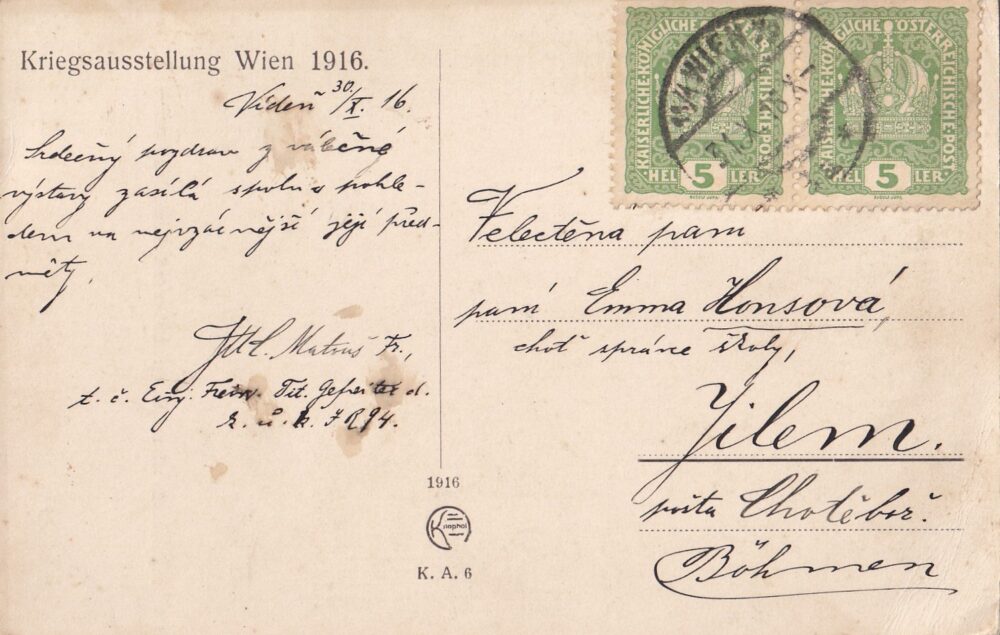 Kriegsausstellung Wien 1916.
Vídeň 30./X. 16.
Srdečný pozdrav z váběné
výstavy zasílá spolu s pohle-
dem na nejvzácnější její před-
měty,
Matouš Fr.,
t. č. Einj. Freiw. Tit. Gefreiter d.
k. u. k. I R 94.
1916
Knaphol
K. A. 6
KAISERLICHE KÖNIGLICHE ÖSTERREICHISCHE POST
5
HELLER
KAISERLICHE KÖNIGLICHE ÖSTERREICHISCHE POST
5
HELLER
WIEN
Velectěná paní
paní Emma Honsová,
choť správce školy,
Jilem.
pošta Chotěboř.
Böhmen